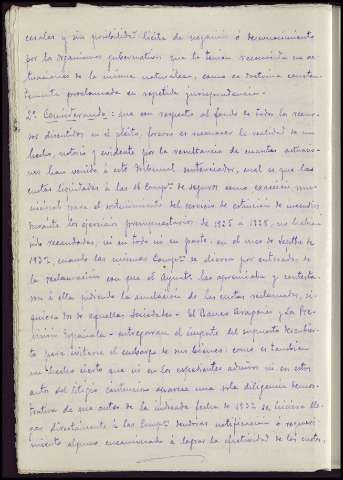 cesales y sin posibilidad lícita de negación ó desconocimiento
por los organismos gubernativos que la tenían reconocida en ac
tuaciones de la misma naturaleza, como es doctrina constan
temente proclamada en repetida jurisprudencia.
2º Considerando: que con respecto al fondo de todos los recur
sos discutidos en el pleito, forzoso es reconocer la realidad de un
hecho, notorio y evidente por la resultancia de cuantas actuacio
nes han venido á este Tribunal sentenciador, cual es que las
cuotas liquidadas á las 16 Compªs de seguros como exacción mu
nicipal para el sostenimiento del servicio de extinción de incendios
durante los ejercicios presupuestarios de 1925 a 1928, no habían
sido recaudadas, ni en todo ni en parte, en el mes de Sepbre de
1932, cuando las mismas Compªs se dieron por enteradas de
la reclamación con que el Ayuntº las apremiaba y contesta
ron á ella pidiendo la anulación de las cuotas reclamadas, si
quiera dos de aquellas Sociedades - El Banco Aragonés y La Pre
visión Española - entregaran el importe del impuesto descubier
to para evitarse el embargo de sus bienes; como es también
un hecho cierto que ni en los expedientes advos ni en estos
autos del litigio contencioso aparece una sola diligencia demos
trativa de que antes de la indicada fecha de 1932 se hiciera lle
gar directamente á las Compªs deudoras notificación o requeri
miento alguno encaminado á lograr la efectividad de las cuotas.